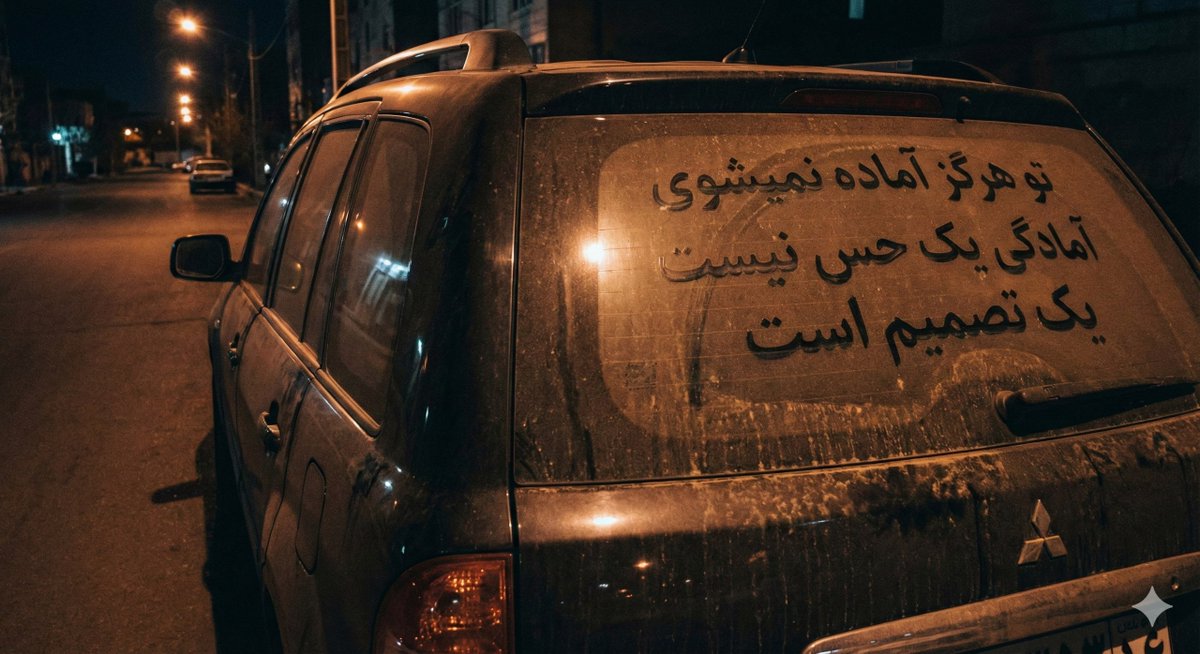 تو هرگز آماده نمیشوی
آمادگی یک حس نیست
یک تصمیم است